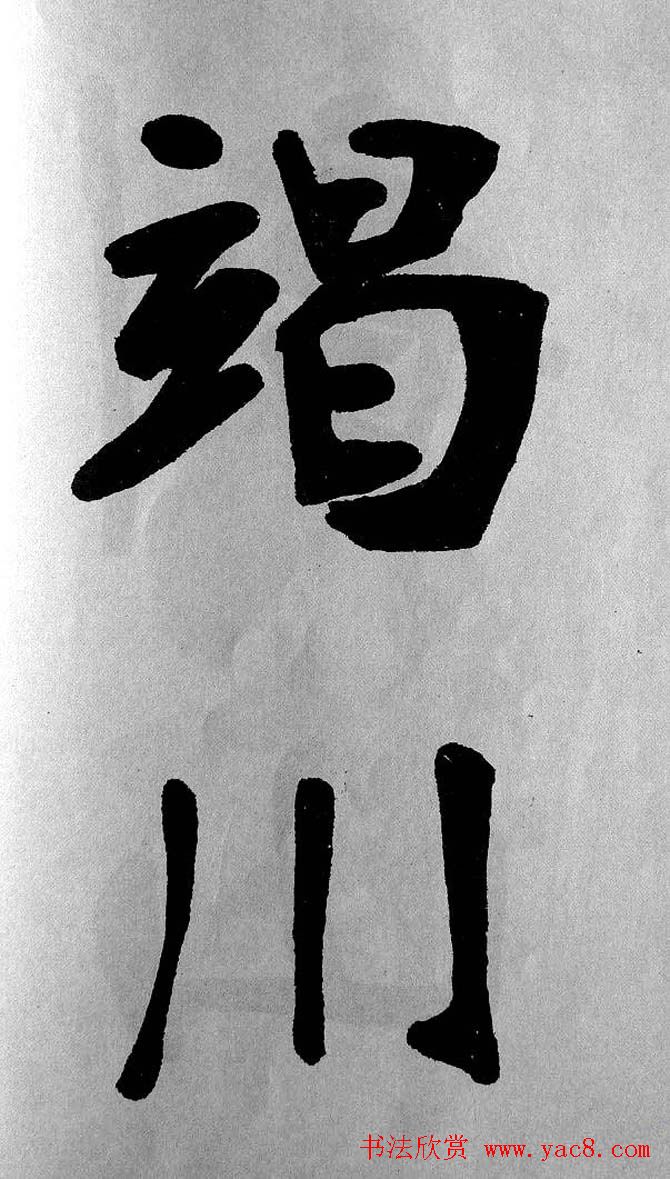 竭川
书法欣赏 www.yac8.com